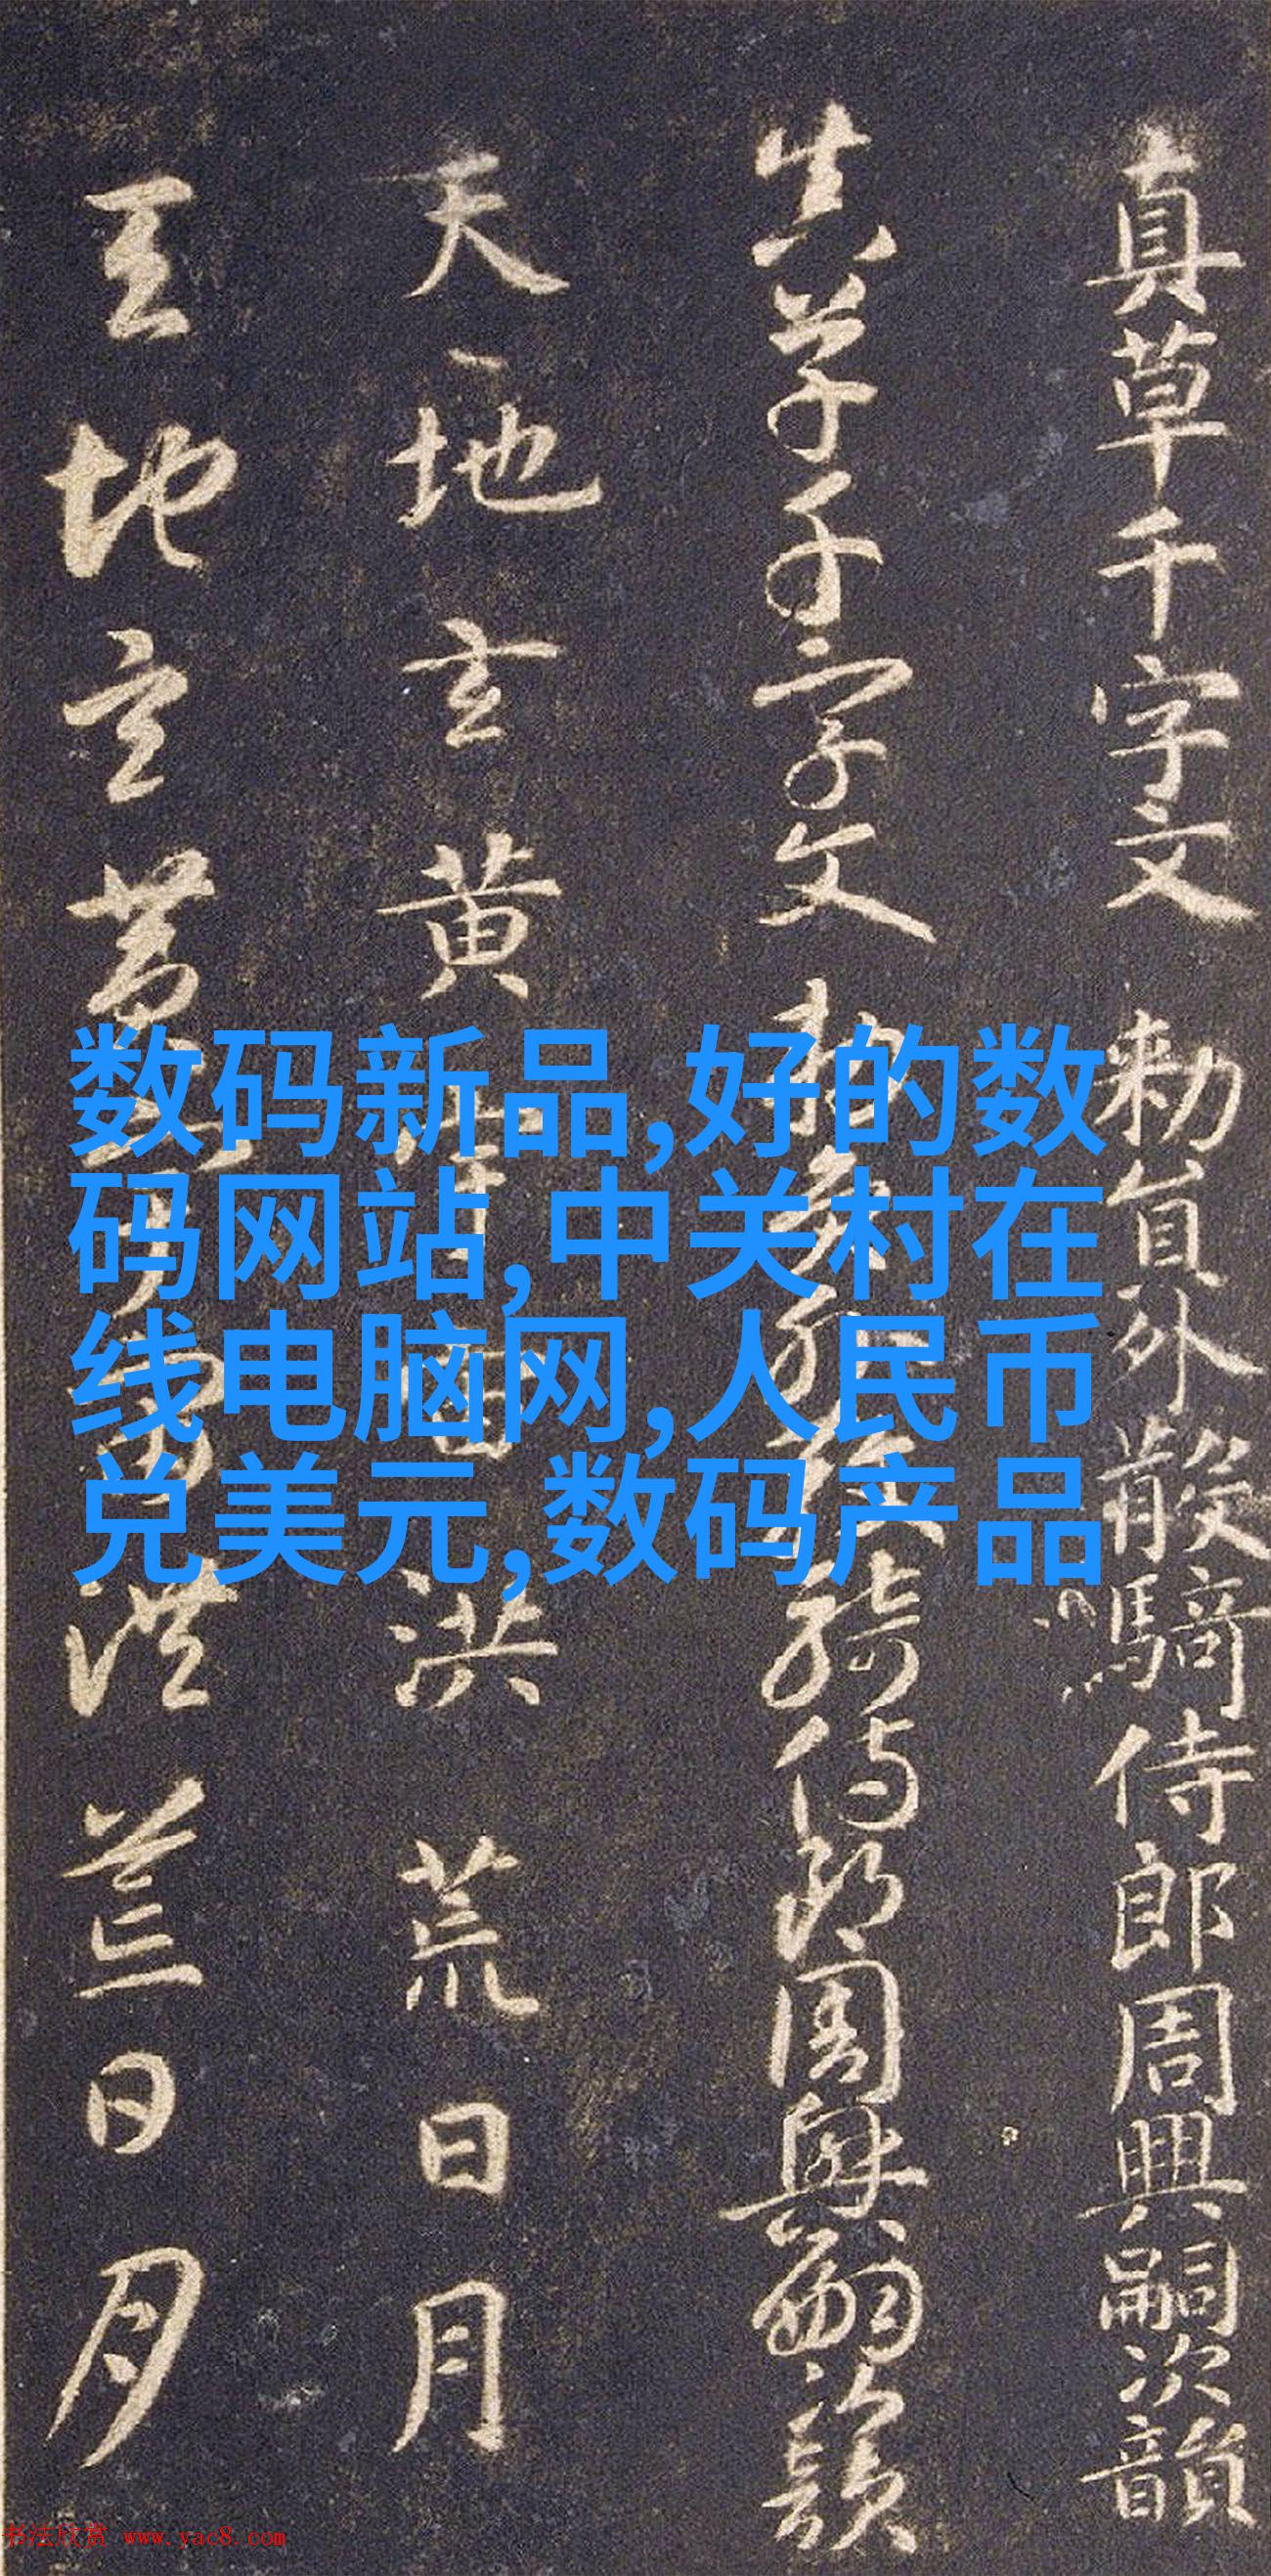 真草千字文 勅員外散騎侍郎周興嗣次韻
真草千字文 勅員外散騎侍郎周興嗣次韻
天地玄黄宇宙洪荒日月
天地玄黄宇宙洪荒日月
数码新品,好的数
码网站,中关村在
线电脑网,人民币
兑美元,数码产品
书法欣赏 www.yac8.com